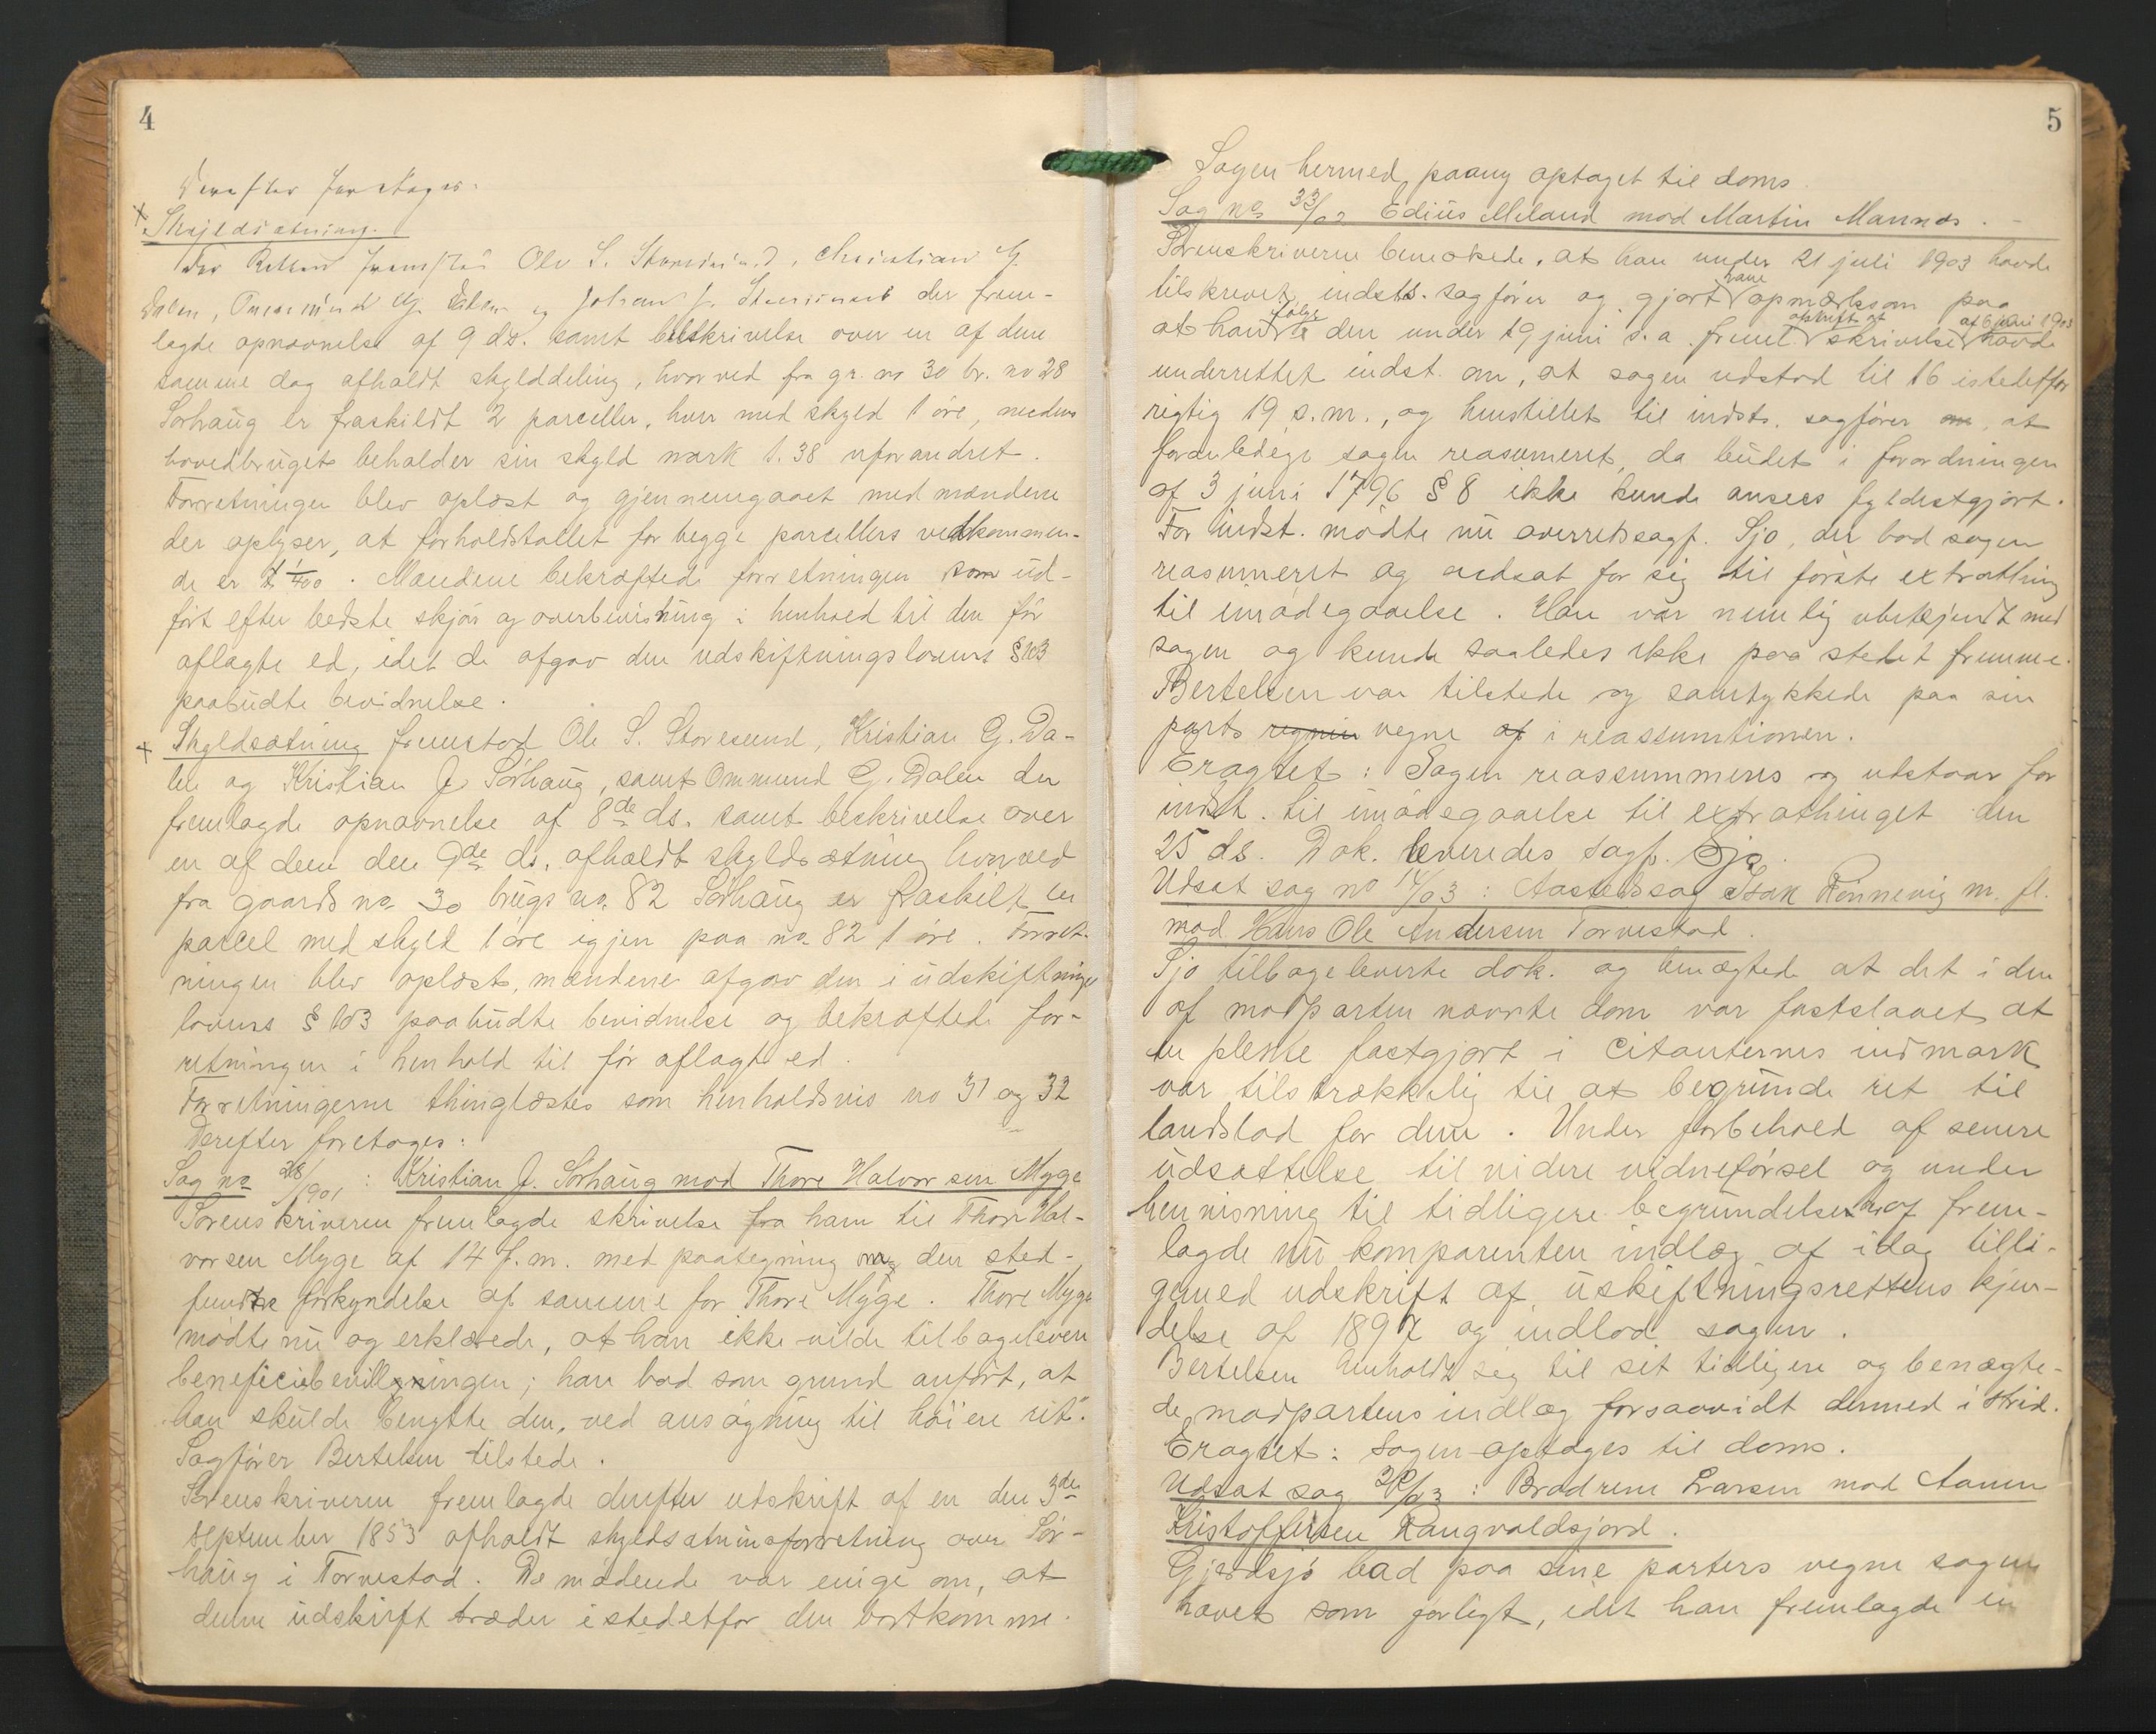 4
Derefter foretages:
+
Skyldsætning.
For Retten fremstod Ole S. Storesund, Christian G.
Dalen, Ommund G. Dalen og Johan J. Storesund der frem-
lagde opnævnelse af 9 ds. samt beskrivelse over en af dem
samme dag afholdt skylddeling, hvorved fra gr. no 30 br. no 28
Sørhaug er fraskildt 2 parceller, hver med skyld 1 øre, medens
hovedbruget beholder sin skyld mark 1.38 uforandret.
Forretningen blev oplæst og gjennemgaaet med mændene
der oplyser, at forholdstallet for begge parcellers vedkommen-
de er 1/400. Mændene bekræftede forretningen som ud-
ført efter bedste skjøn og overbevisning i henhold til den før
aflagte ed, idet de afgav den udskiftningslovens § 103
paabudte bevidnelse.
+
Skyldsætning fremstod Ole S. Storesund, Kristian G. Da-
len og Kristian J. Sørhaug, samt Ommund G. Dalen der
fremlagde opnævnelse af 8de ds. samt beskrivelse over
en af dem den 9de ds. afholdt skyldsætning hvorved
fra gaards no 30 brugs no. 82 Sørhaug er fraskilt en
parcel med skyld 1 øre igjen paa no 82 1 øre. Forret-
ningen blev oplæst, mændene afgav den i udskiftnings
lovens § 103 paabudte bevidnelse og bekræftede for-
retningen i henhold til før aflagte ed.
Forretningerne thinglæstes som henholdsvis no 31 og 32
Derefter foretages:
Sag no 28/1901: Kristian J. Sørhaug mod Thore Halvorsen Myge
Sorenskriveren fremlagde skrivelse fra ham til Thore Hal-
vorsen Myge af 14 f.m. med paategning om den sted-
fundne forkyndelse af samme for Thore Myge. Thore Myge
mødte nu og erklærede, at han ikke vilde tilbagelevere
beneficiebevillingen; han bad som grund anført, at
han skulde benytte den "ved ansøgning til høiere ret".
Sagfører Bertelsen tilstede.
Sorenskriveren fremlagde derefter utskrift af en den 3die
september 1853 afholdt skyldsætningsforretning over Sør-
haug i Torvestad. De mødende var enige om, at
denne udskrift træder istedetfor den bortkomne.
5
Sagen hermed paany optaget til doms.
Sag no 33/02 Edius Meland mod Martin Mannes.
Sorenskriveren bemerkede, at han under 21 juli 1903 havde
tilskrevet indsts. sagfører og gjort ham opmærksom paa
at han ifølge den under 19 juni s.a. freml. afskrift af skrivelse af 6 juni 1903 havde
underrettet indst. om, at sagen udstod til 16 istedetfor
rigtig 19 s.m., og henstillet til indsts. sagfører at
foranledige sagen reasumeret, da budet i forordningen
af 3 juni 1796 § 8 ikke kunde ansees fyldestgjort.
For indst. mødte nu overretssagf. Sjo, der bad sagen
reasumeret og udsat for sig til første extrathing
til imødegaaelse. Han var nemlig ubekjendt med
sagen og kunde saaledes ikke paa stedet fremme.
Bertelsen var tilstede og samtykkede paa sin
parts vegne i reassumtionen.
Eragtet: Sagen reassummeres og udstaar for
indst. til imødegaaelse til extrathinget den
25 ds. Dok. leveredes sagf. Sjo.
Udsat sag no 14/03: Aastedssag Isak Rønnevig m. fl.
mod Hans Ole Andersen Torvestad.
Sjo tilbageleverte dok. og benægtede at det i den
af modparten nævnte dom var fastslaaet, at
en plenke fastgjort i Citanternes indmark
var tilstrækkelig til at begrunde ret til
landslod for dem. Under forbehold af senere
udsættelse til videre vidneførsel og under
henvisning til tidligere begrundelse heraf frem-
lagde nu komparenten indlæg af idag tilli-
gemed udskrift af uskiftningsrettens kjen-
delse af 1897 og indlod sagen.
Bertelsen henholdt sig til sit tidligere og benægte-
de modpartens indlæg forsaavidt dermed i strid.
Eragtet: Sagen optages til doms.
Udsat sag 20/03: Brødrene Larsen mod Aanen
Kristoffersen Raugvaldsjord.
Gjerdsjø bad paa sine parters vegne sagen
hævet som forligt, idet han fremlagde en